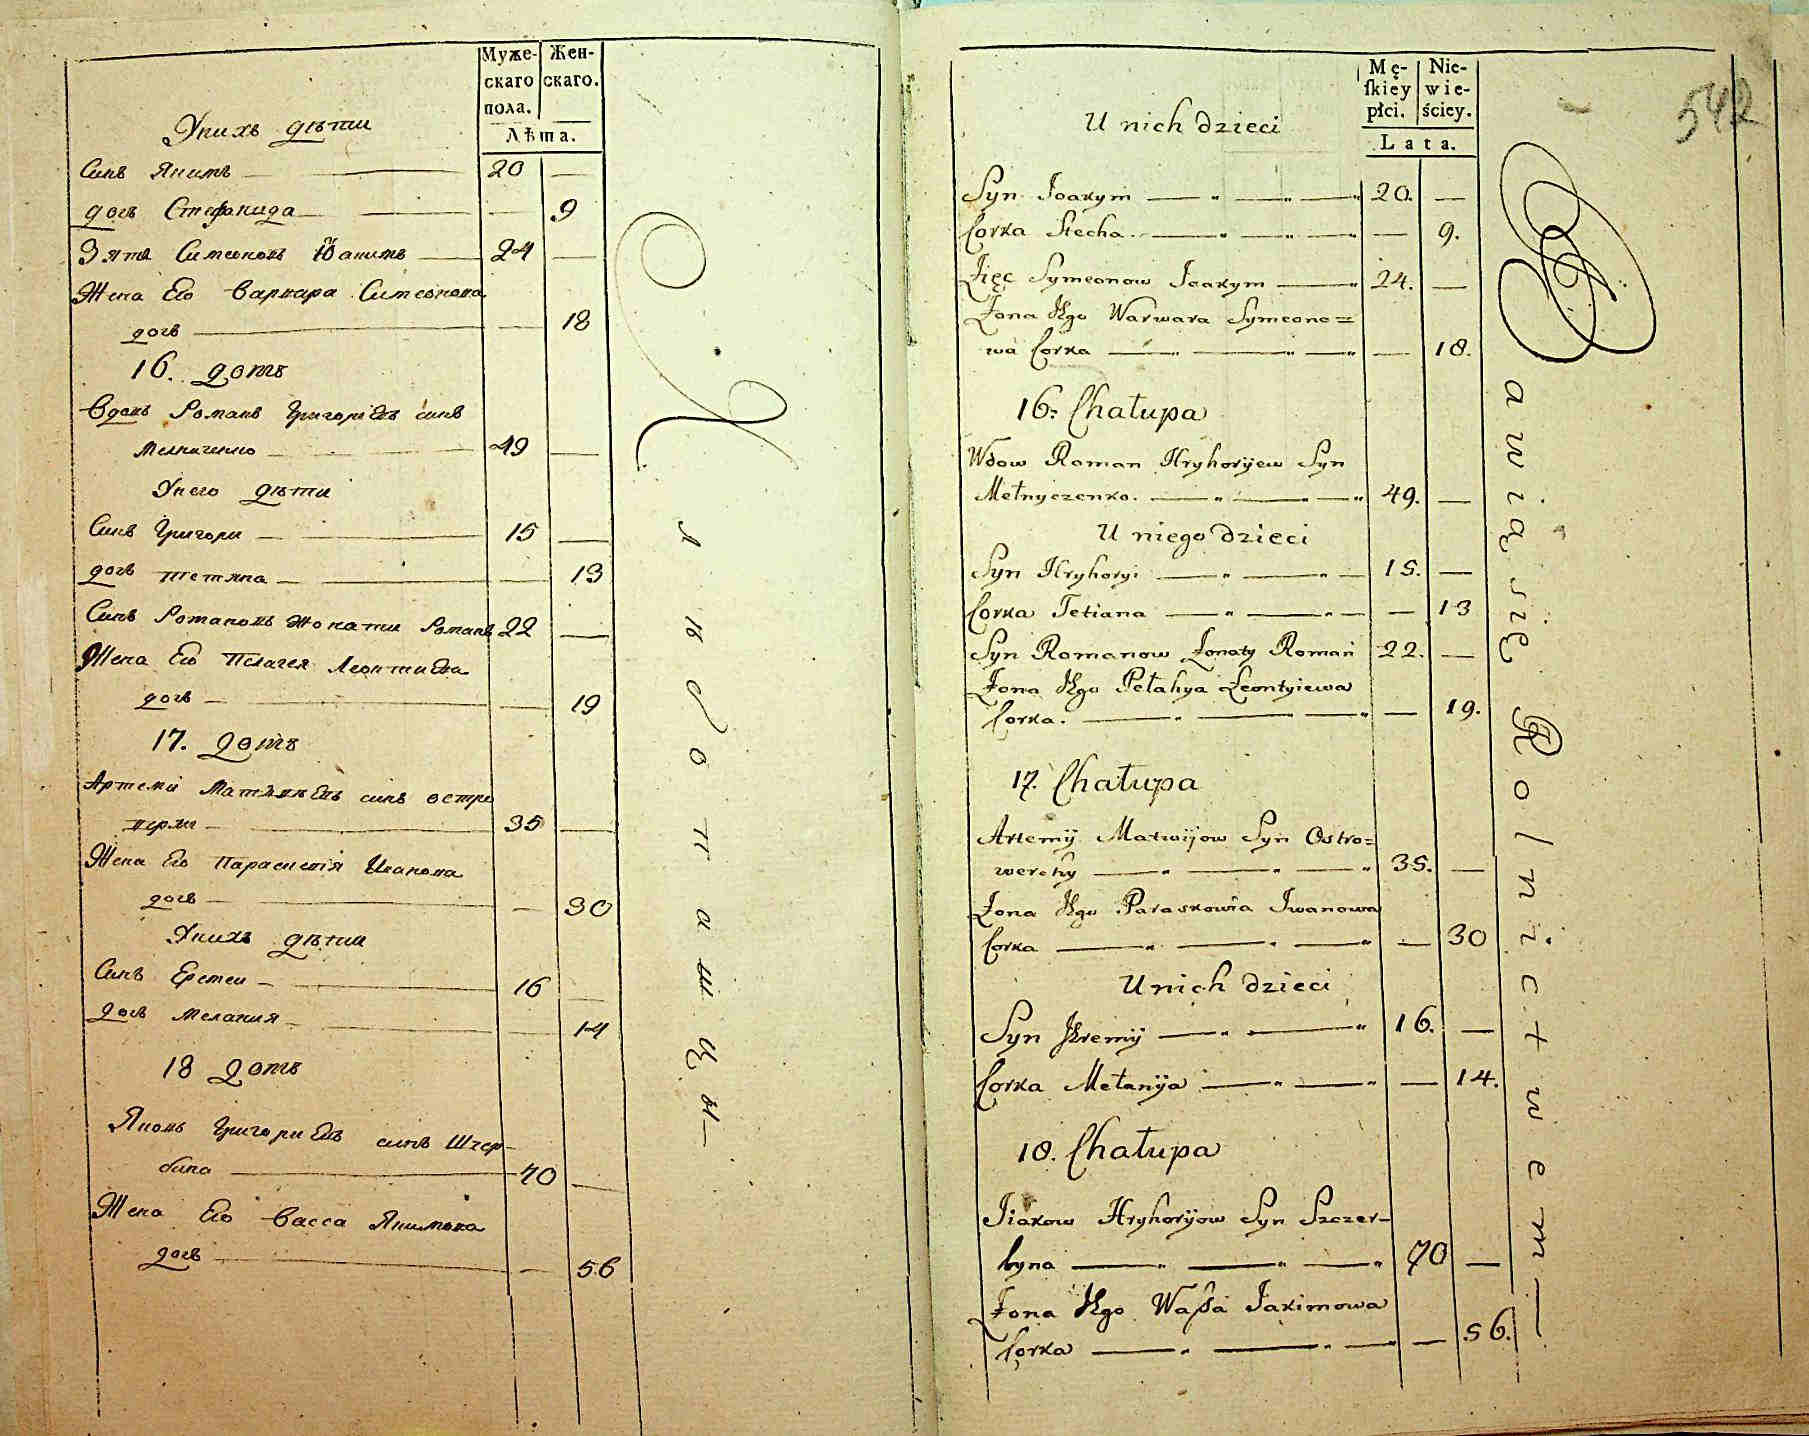 Муже-
скаго
пола.
Жен-
скаго.
Лѣта.
Унихъ дѣти
Синъ Якимъ 20 —
дочъ Стефанида — 9
Зять Симеоновъ Йакимъ 24 —
Жена Его Варвара Симеонова
дочь — 18
16. домъ
Вдовъ Романъ Григоріевъ синъ
Мелниченко 49 —
Унего дѣти
Синъ Григори 15 —
дочь Тетяна — 13
Синъ Романовъ Жонати Романъ 22 —
Жена Его Пелагея Леонтиева
дочь — 19
17. домъ
Артемій Матвѣевъ синъ остро
верхи 35 —
Жена Его Параскевія Иванова
дочь — 30
Унихъ дѣти
Синъ Еремеи 16 —
дочъ Мелания — 14
18 домъ
Яковъ Григориевъ синъ Щер-
бина 70 —
Жена Его Васса Якимова
дочь — 56
хлѣбопашцы
542
Mę-
skiey
płci.
Nie-
wie-
ściey.
Lata.
U nich dzieci
Syn Joakym 20. —
Corka Stecha — 9.
Zięć Symeonow Joakym 24. —
Żona Jego Warwara Symeono=
wa Corka — 18.
16. Chałupa
Wdow Roman Hryhorijew Syn
Mełnyczenko. 49. —
U niego dzieci
Syn Hryhoryi 15. —
Corka Tetiana — 13
Syn Romanow Żonaty Roman 22. —
Żona Jego Pełahya Leontyiewa
Corka. — 19.
17. Chałupa
Artemij Matwijow Syn Ostro=
werchy 35. —
Żona Jego Paraskowia Iwanowa
Corka — 30
U nich dzieci
Syn Jeremij 16. —
Corka Mełanija — 14.
18. Chałupa
Jiakow Hryhorijow Syn Szczer-
byna 70 —
Żona Jego Waßa Jakimowa
Corka — 56.
Bawią się Rolnictwem